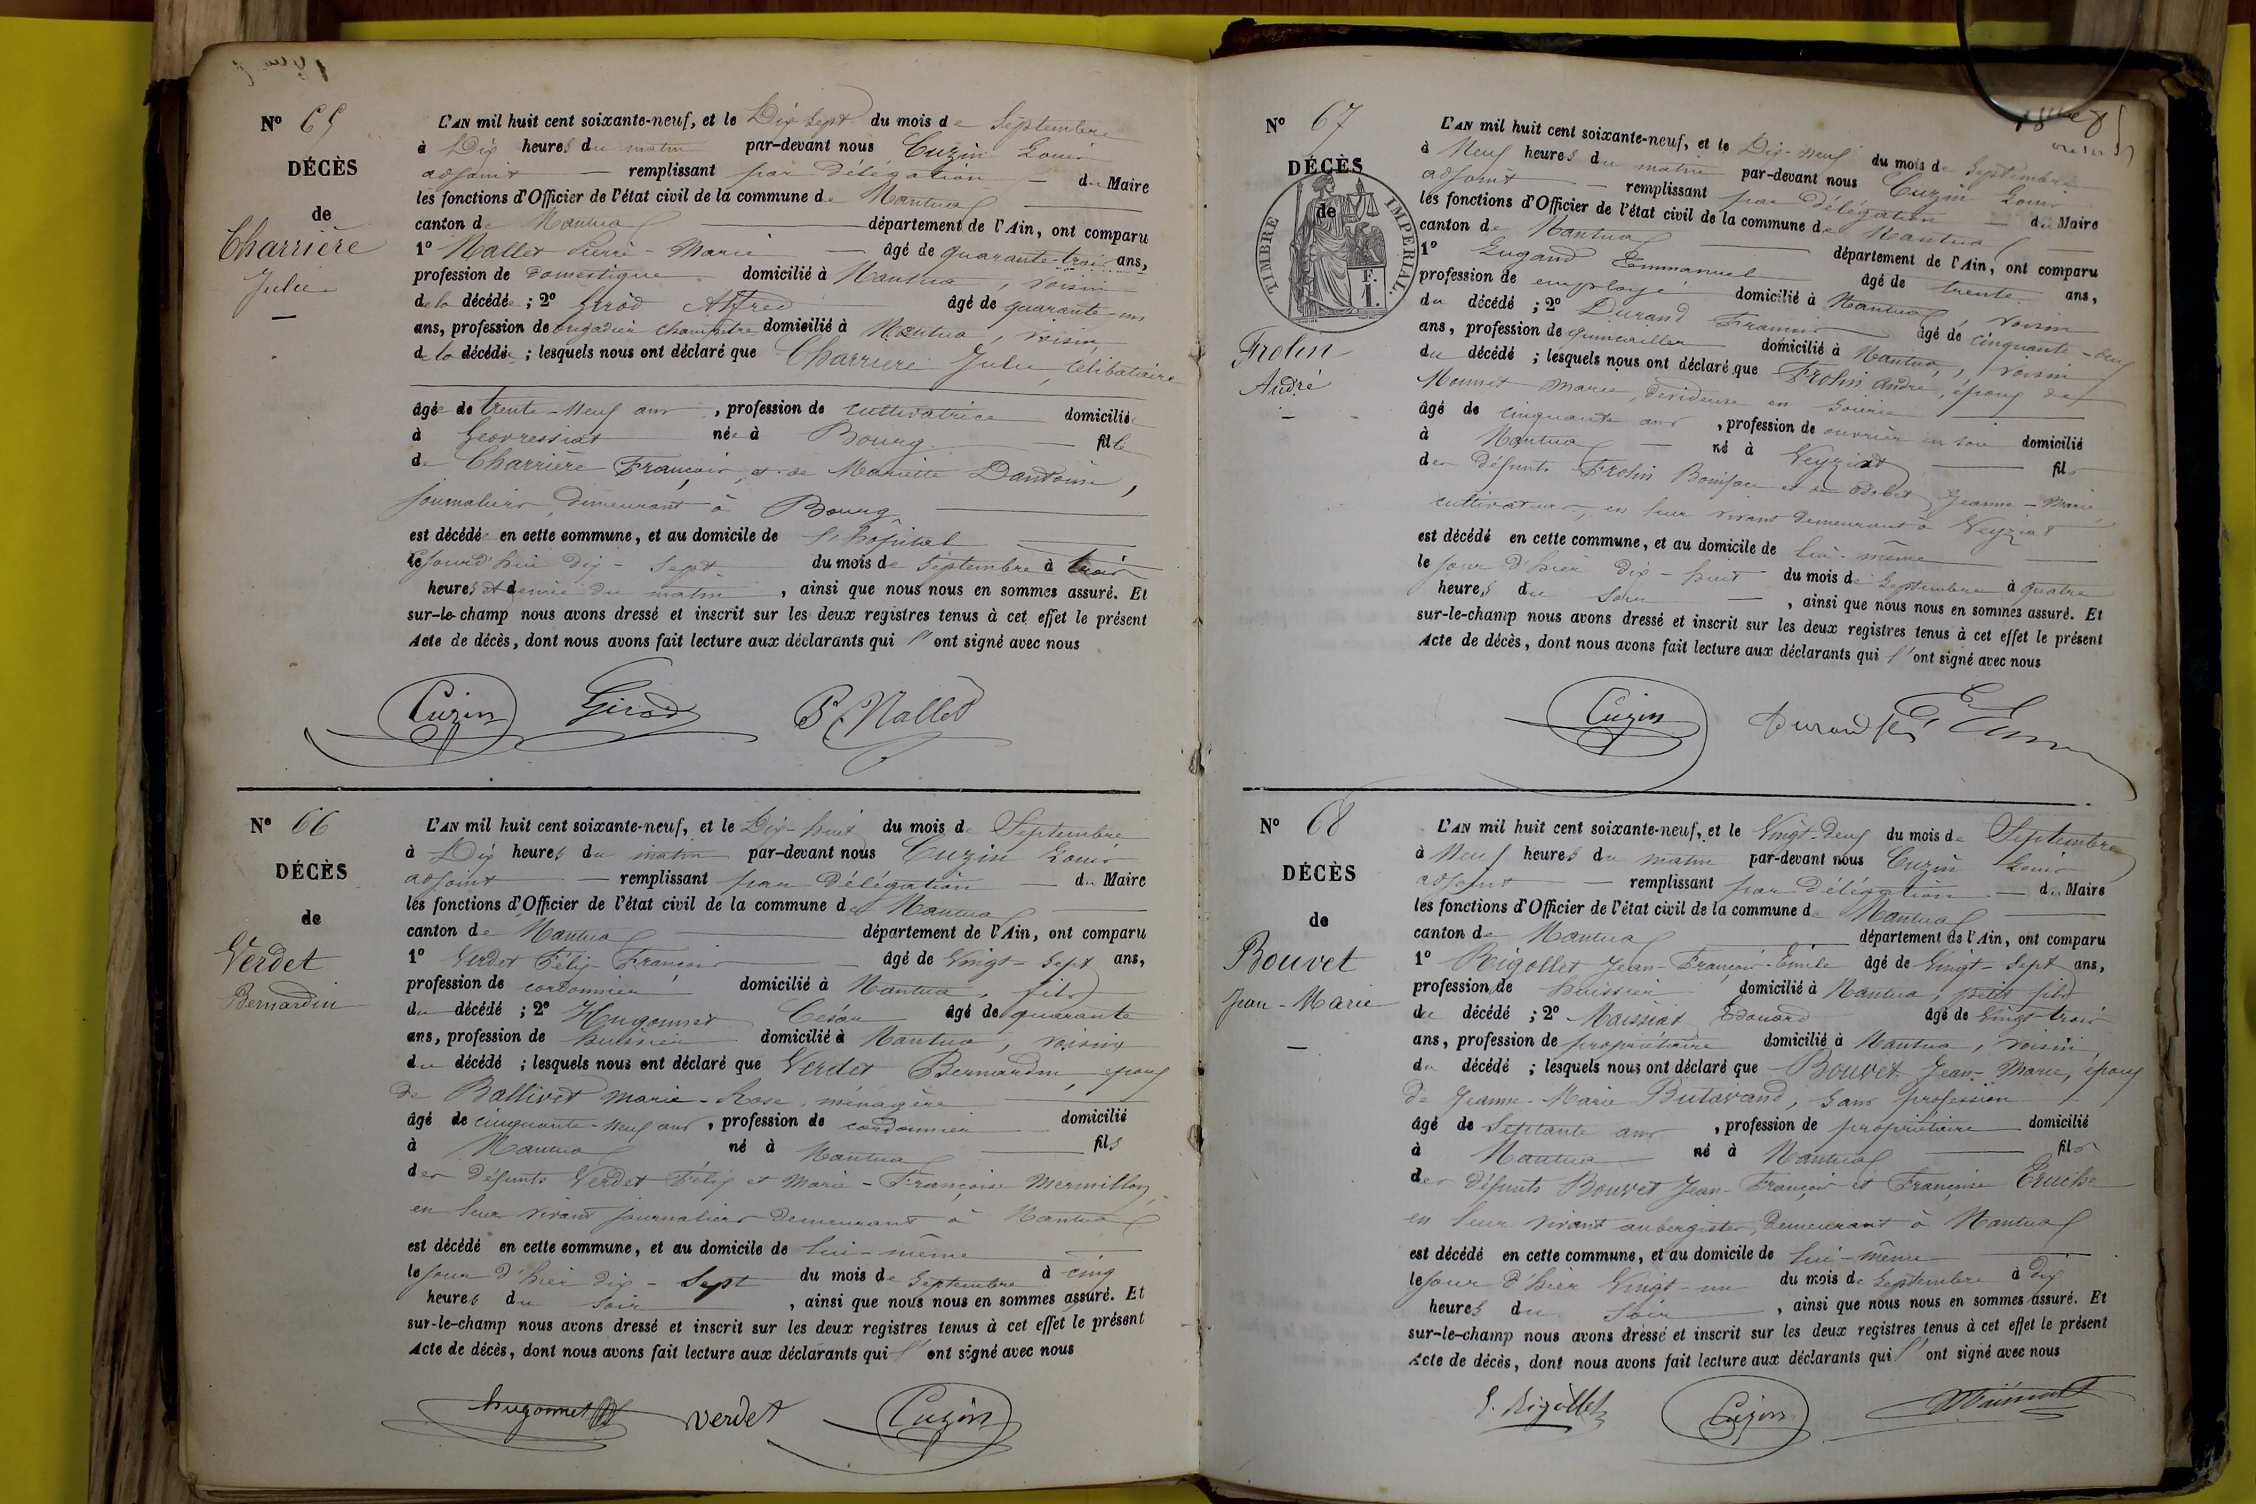 N° 65
DÉCÈS
de
Charrière
Julie
L'AN mil huit cent soixante-neuf, et le Dix sept du mois de Septembre
à Dix heures du matin par-devant nous Cuzin Louis
adjoint remplissant par délégation du Maire
les fonctions d'Officier de l'état civil de la commune de Nantua
canton de Nantua département de l'Ain, ont comparu
1° Nallet Pierre-Marie âgé de quarante-trois ans,
profession de domestique domicilié à Nantua, voisin
de la décédée ; 2° Girod Alfred âgé de quarante-un
ans, profession de brigadier champêtre domicilié à Nantua, voisin
de la décédée ; lesquels nous ont déclaré que Charrière Julie, célibataire
âgée de trente-neuf ans, profession de cultivatrice domiciliée
à Geovressiat née à Bourg fille
de Charrière François, et de Mariette Dantoine,
journaliers, demeurant à Bourg
est décédée en cette commune, et au domicile de l'hôpital
le jourd'hui dix-sept du mois de Septembre à trois
heures et demie du matin, ainsi que nous nous en sommes assuré. Et
sur-le-champ nous avons dressé et inscrit sur les deux registres tenus à cet effet le présent
Acte de décès, dont nous avons fait lecture aux déclarants qui l'ont signé avec nous
Cuzin Girod P. Nallet
N° 66
DÉCÈS
de
Verdet
Bernardin
L'AN mil huit cent soixante-neuf, et le Dix-huit du mois de Septembre
à Dix heures du matin par-devant nous Cuzin Louis
adjoint remplissant par délégation du Maire
les fonctions d'Officier de l'état civil de la commune de Nantua
canton de Nantua département de l'Ain, ont comparu
1° Verdet Félix François âgé de Vingt-sept ans,
profession de cordonnier domicilié à Nantua, fils
du décédé ; 2° Hugonnet César âgé de quarante
ans, profession de huissier domicilié à Nantua, voisin
du décédé ; lesquels nous ont déclaré que Verdet Bernardin, époux
de Ballivet Marie-Rose, ménagère
âgé de cinquante-neuf ans, profession de cordonnier domicilié
à Nantua né à Nantua fils
des défunts Verdet Félix et Marie-Françoise Mermillon,
en leur vivant journaliers demeurant à Nantua
est décédé en cette commune, et au domicile de lui-même
le jour d'hier dix-sept du mois de Septembre à cinq
heures du soir, ainsi que nous nous en sommes assuré. Et
sur-le-champ nous avons dressé et inscrit sur les deux registres tenus à cet effet le présent
Acte de décès, dont nous avons fait lecture aux déclarants qui l'ont signé avec nous
hugonnet verdet Cuzin
N° 67
DÉCÈS
de
TIMBRE IMPERIAL
F.
1.
Frolin
André
L'AN mil huit cent soixante-neuf, et le Dix-neuf du mois de Septembre
à Neuf heures du matin par-devant nous Cuzin Louis
adjoint remplissant par délégation du Maire
les fonctions d'Officier de l'état civil de la commune de Nantua
canton de Nantua département de l'Ain, ont comparu
1° Gugand Emmanuel âgé de trente ans,
profession de employé domicilié à Nantua, voisin
du décédé ; 2° Durand François âgé de cinquante-deux
ans, profession de quincailler domicilié à Nantua, voisin
du décédé ; lesquels nous ont déclaré que Frolin André, époux de
Monnet Marie, devideuse en soierie
âgé de cinquante ans, profession de ouvrier en soie domicilié
à Nantua né à Veyziat fils
des défunts Frolin Boniface et de Odobet Jeanne-Marie,
cultivateurs, en leur vivant demeurant à Veyziat
est décédé en cette commune, et au domicile de lui-même
le jour d'hier dix-huit du mois de Septembre à quatre
heures du soir, ainsi que nous nous en sommes assuré. Et
sur-le-champ nous avons dressé et inscrit sur les deux registres tenus à cet effet le présent
Acte de décès, dont nous avons fait lecture aux déclarants qui l'ont signé avec nous
Cuzin Durand
N° 68
DÉCÈS
de
Bouvet
Jean-Marie
L'AN mil huit cent soixante-neuf, et le Vingt-deux du mois de Septembre
à Neuf heures du matin par-devant nous Cuzin Louis
adjoint remplissant par délégation du Maire
les fonctions d'Officier de l'état civil de la commune de Nantua
canton de Nantua département de l'Ain, ont comparu
1° Rigollet Jean-François-Emile âgé de Vingt-sept ans,
profession de huissier domicilié à Nantua, petit fils
du décédé ; 2° Maissiat Edouard âgé de Vingt-trois
ans, profession de propriétaire domicilié à Nantua, voisin
du décédé ; lesquels nous ont déclaré que Bouvet Jean-Marie, époux
de Jeanne-Marie Butavand, sans profession
âgé de Septante ans, profession de propriétaire domicilié
à Nantua né à Nantua fils
des défunts Bouvet Jean-François et Françoise Cruche
en leur vivant aubergistes, demeurant à Nantua
est décédé en cette commune, et au domicile de lui-même
le jour d'hier Vingt-un du mois de Septembre à Dix
heures du soir, ainsi que nous nous en sommes assuré. Et
sur-le-champ nous avons dressé et inscrit sur les deux registres tenus à cet effet le présent
Acte de décès, dont nous avons fait lecture aux déclarants qui l'ont signé avec nous
E. Rigollet Cuzin